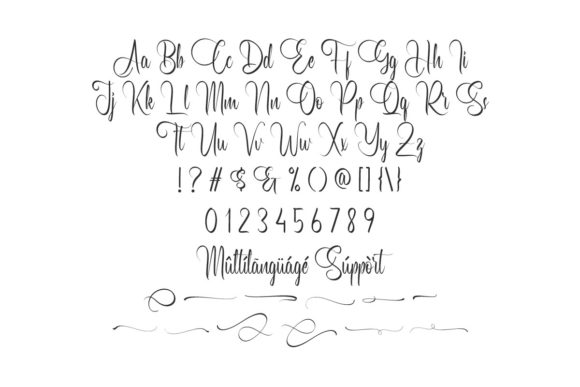 Aa Bb Cc Dd Ee Ff Gg Hh Ii
Jj Kk Ll Mm Nn Oo Pp Qq Rr Ss
Tt Uu Vv Ww Xx Yy Zz
!?#$&%()@[]{\}
0123456789
Mûltilãngüágé Súppòrt